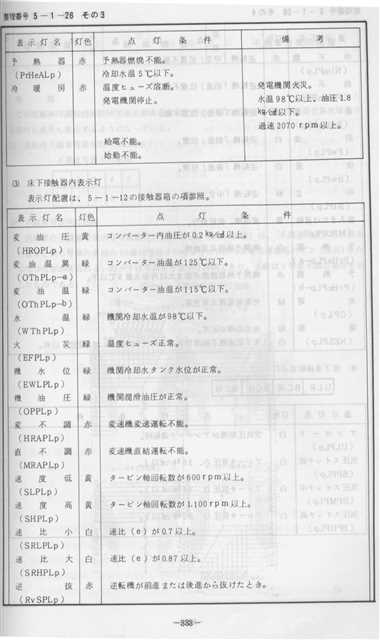 整理番号 5－1－26 その3
表示灯名 灯色 点灯条件 備考
予熱器 赤 予熱器燃焼不能。
(PrHeALp) 冷却水温5℃以下。
冷暖房 赤 温度ヒューズ溶断。 発電機関火災。
発電機関停止。 水温98℃以上、油圧1.8
kg/cm²以下。
過速2070rpm以上。
給電不能。
始動不能。
(3) 床下接触器内表示灯
表示灯配置は、5－1－12の接触器箱の項参照。
表示灯名 灯色 点灯条件
変油圧 黄 コンバーター内油圧が0.2kg/cm²以上。
(HROPLp)
変油温異 緑 コンバーター油温が125℃以下。
(OThPLp-a)
変油温 緑 コンバーター油温が115℃以下。
(OThPLp-b)
水温 緑 機関冷却水温が98℃以下。
(WThPLp)
火災 緑 温度ヒューズ正常。
(EFPLp)
機水位 緑 機関冷却水タンク水位が正常。
(EWLPLp)
機油圧 緑 機関潤滑油圧が正常。
(OPPLp)
変不調 赤 変速機変速運転不能。
(HRAPLp)
直不調 赤 変速機直結運転不能。
(MRAPLp)
速度低 黄 タービン軸回転数が600rpm以上。
(SLPLp)
速度高 黄 タービン軸回転数が1,100rpm以上。
(SHPLp)
速比小 白 速比(e)が0.7以上。
(SRLPLp)
速比大 白 速比(e)が0.87以上。
(SRHPLp)
逆抜 赤 逆転機が前進または後進から抜けたとき。
(RvSPLp)
—333—